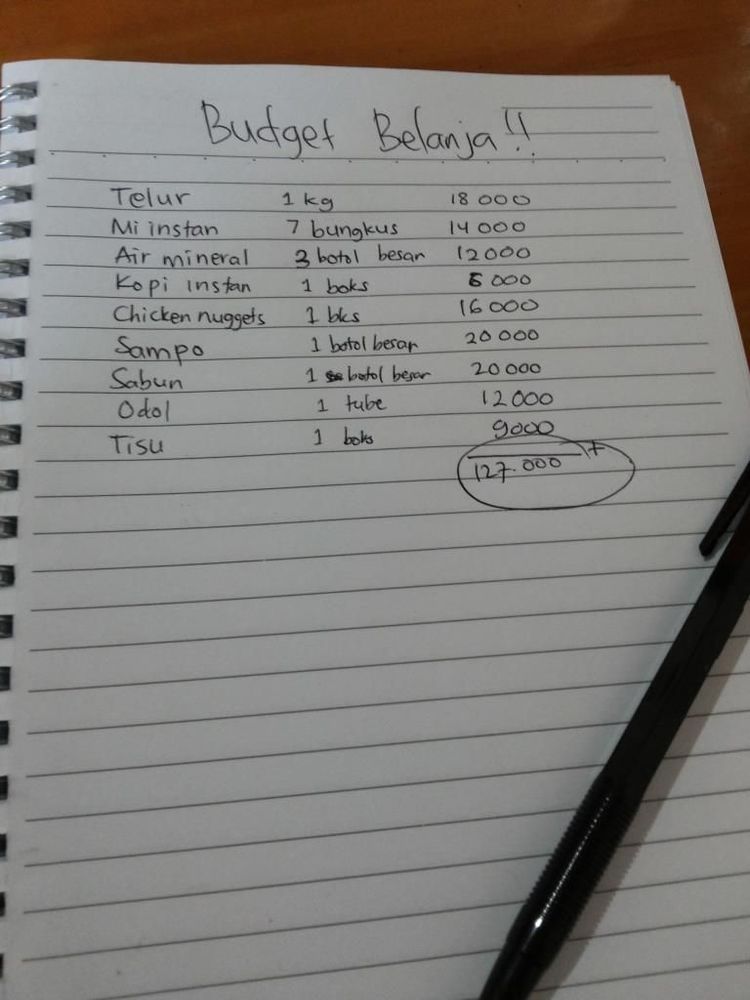 Budget Belanja!!
Telur 1 kg 18 000
Mi instan 7 bungkus 14 000
Air mineral 3 botol besar 12 000
Kopi instan 1 boks 6 000
Chicken nuggets 1 bks 16 000
Sampo 1 botol besar 20 000
Sabun 1 botol besar 20 000
Odol 1 tube 12 000
Tisu 1 boks 9000
+
127.000